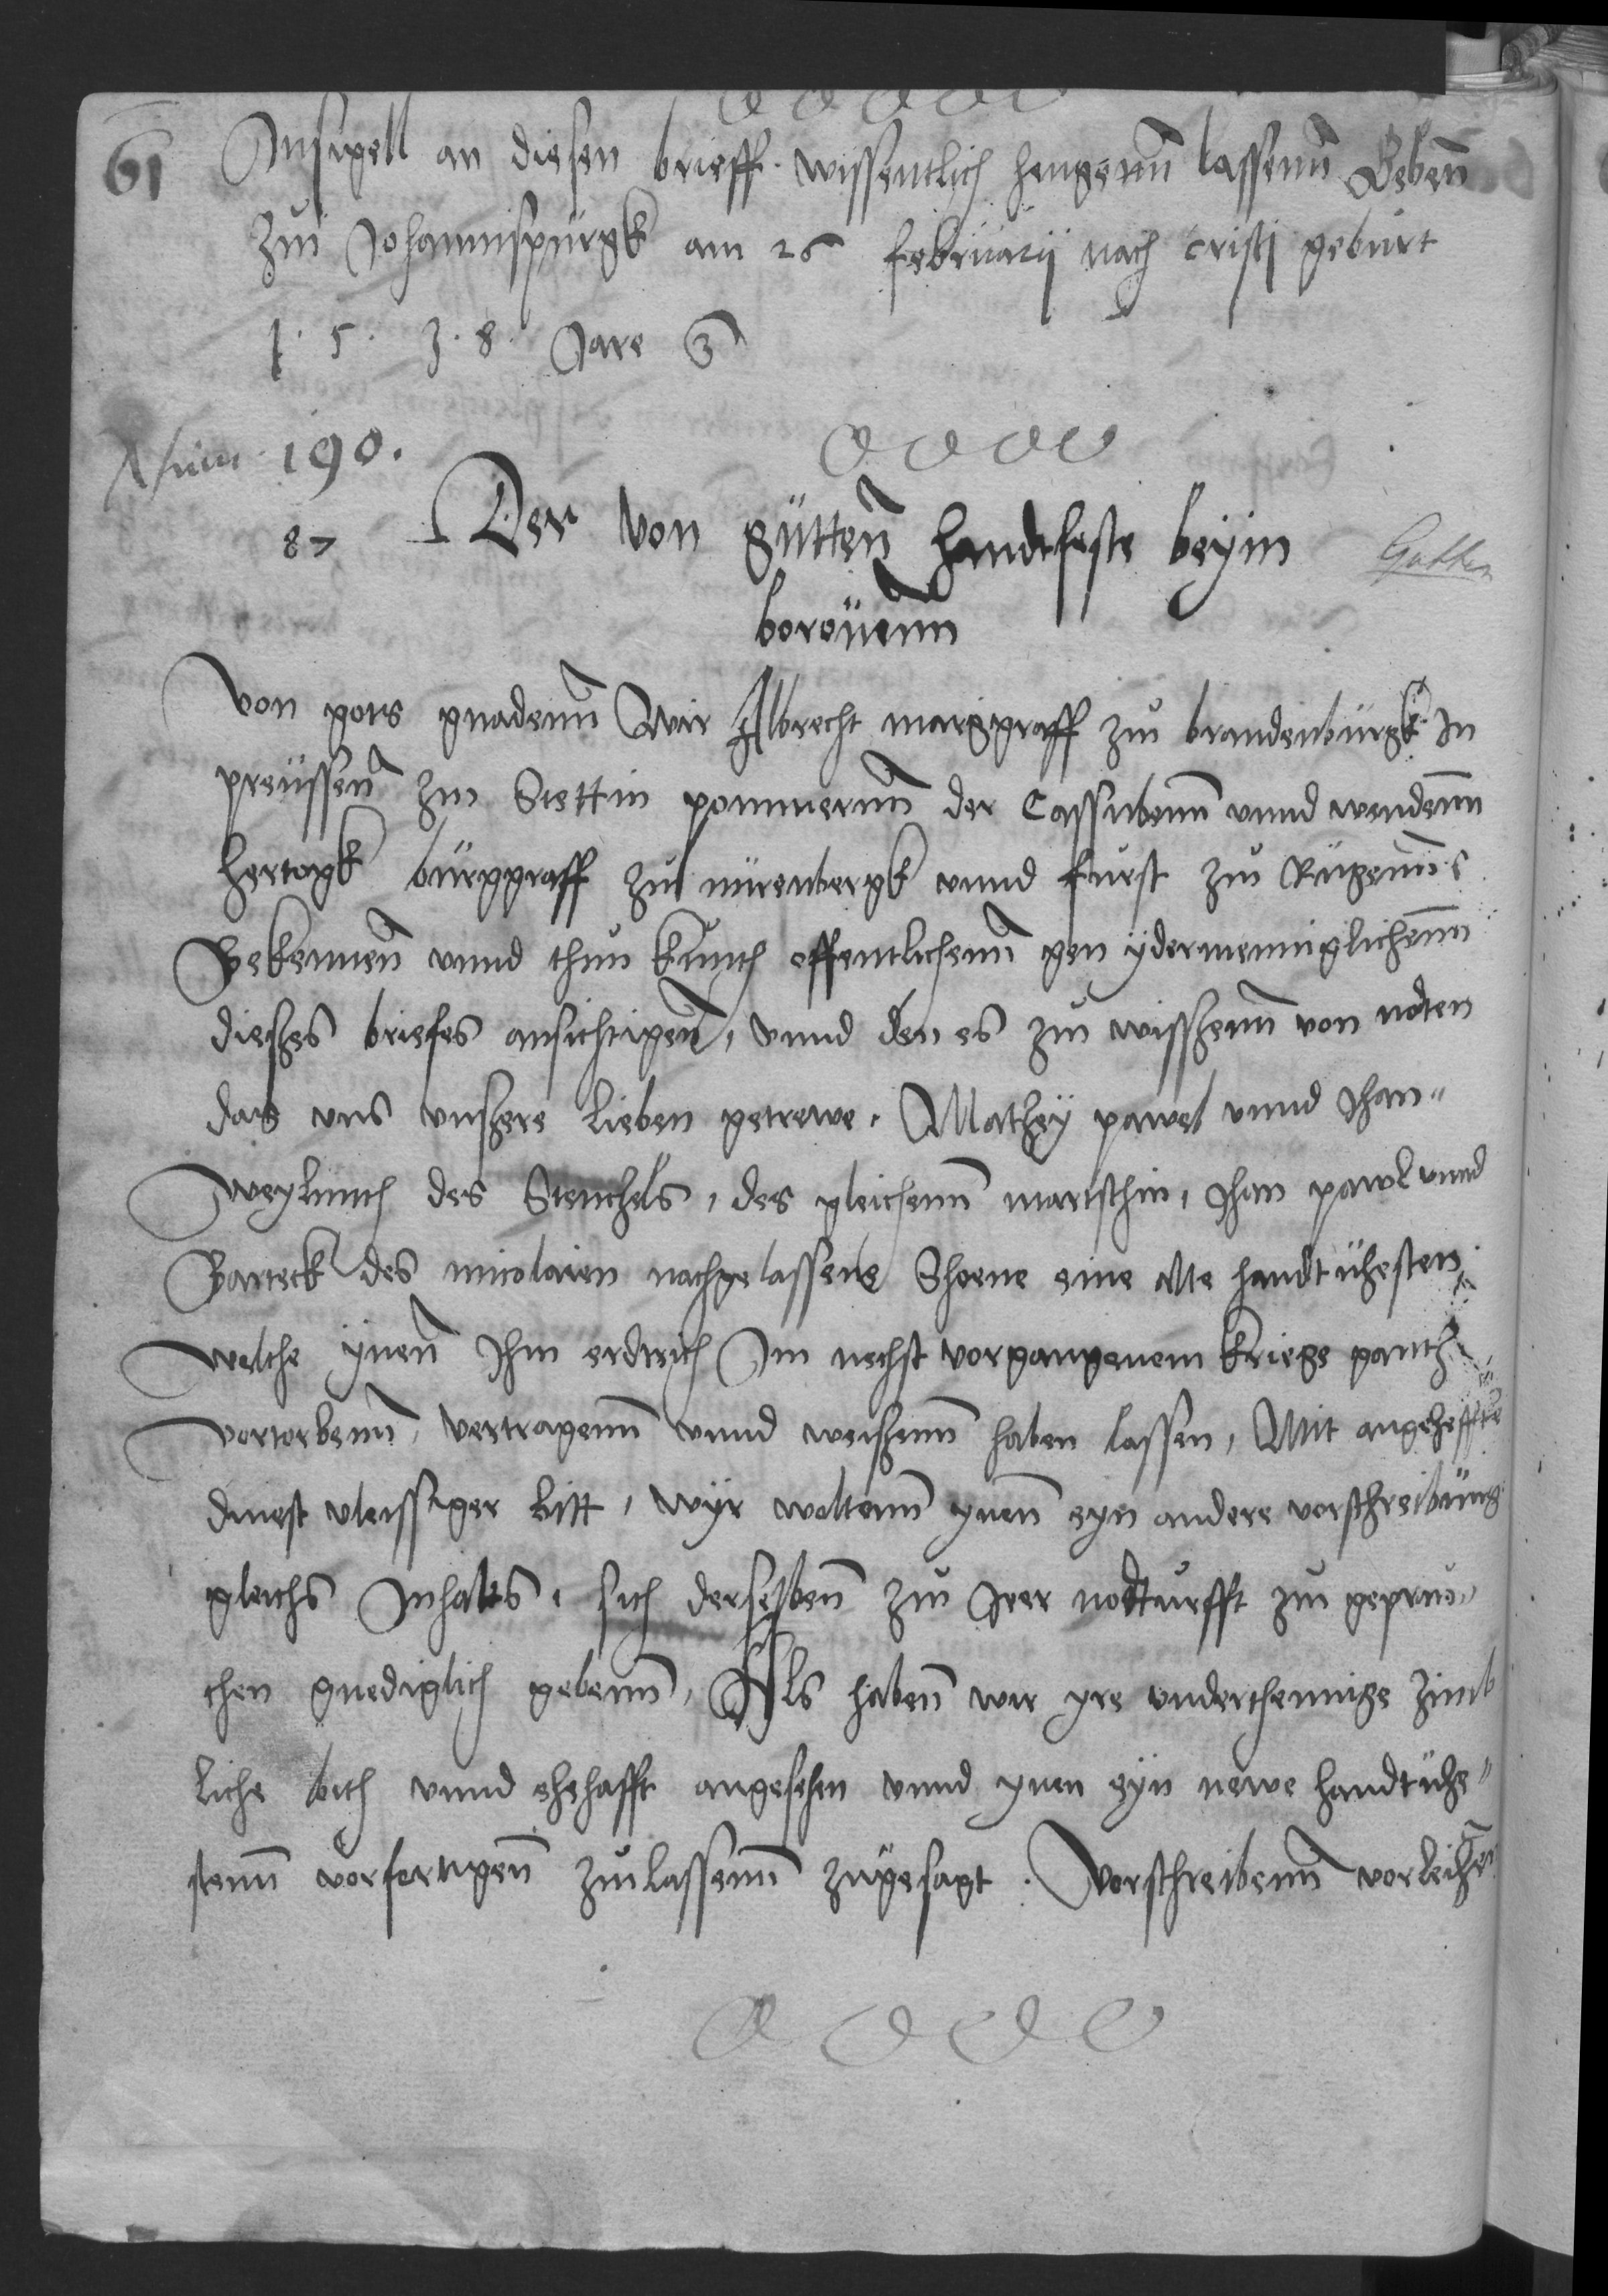 61 Insigell an diesen brieff wissentlich hengenn lassenn Gebenn
zu Johannispurgk am 26 february nach cristi geburt
1. 5. 3. 8. Jare
190.
87 Der von gutten handtfeste beym Gutten
borowenn
Von gots gnadenn Wir Albrecht marggraff zu brandenburgk In
preussenn zu Stettin pommernn der Cassubenn vnnd wendenn
hertzogk burggraff zu nurenbergk vnnd furst zu Rugenn
Bekennen vnnd thun kunth offentlichenn gen ydermenniglichenn
dieszes briefes ansichtigenn, vnnd den es zu wisszenn von noten
das vns vnszere lieben getrewe. Mathey pawel vnnd Jhan
weylunth des Stenchels, des gleichenn martschin, Jhan pawl vnnd
Barteck des nicolaien nachgelassene Shoene eine alte handtuhesten
welche ynenn Ihm erdtrich Im nechst vorgangenem kriege gantz
vortorbenn, vertragenn vnnd weiszenn haben lassen, Mit angeheffte
dinest vleissiger bitt, wyr woltenn ynenn eyn andere vorschreibung
gleichs Inhalts, sich derselbenn zu Irer nodturfft zu geprau
chen gnediglich gebenn, Als habenn wir yre vnderthennige zimb
liche bith vnnd ehehafft angesehen vnnd ynen eyn newe handtuhe
stenn vorfertigenn zulassenn zugesagt. Vorschreibenn vorleihen